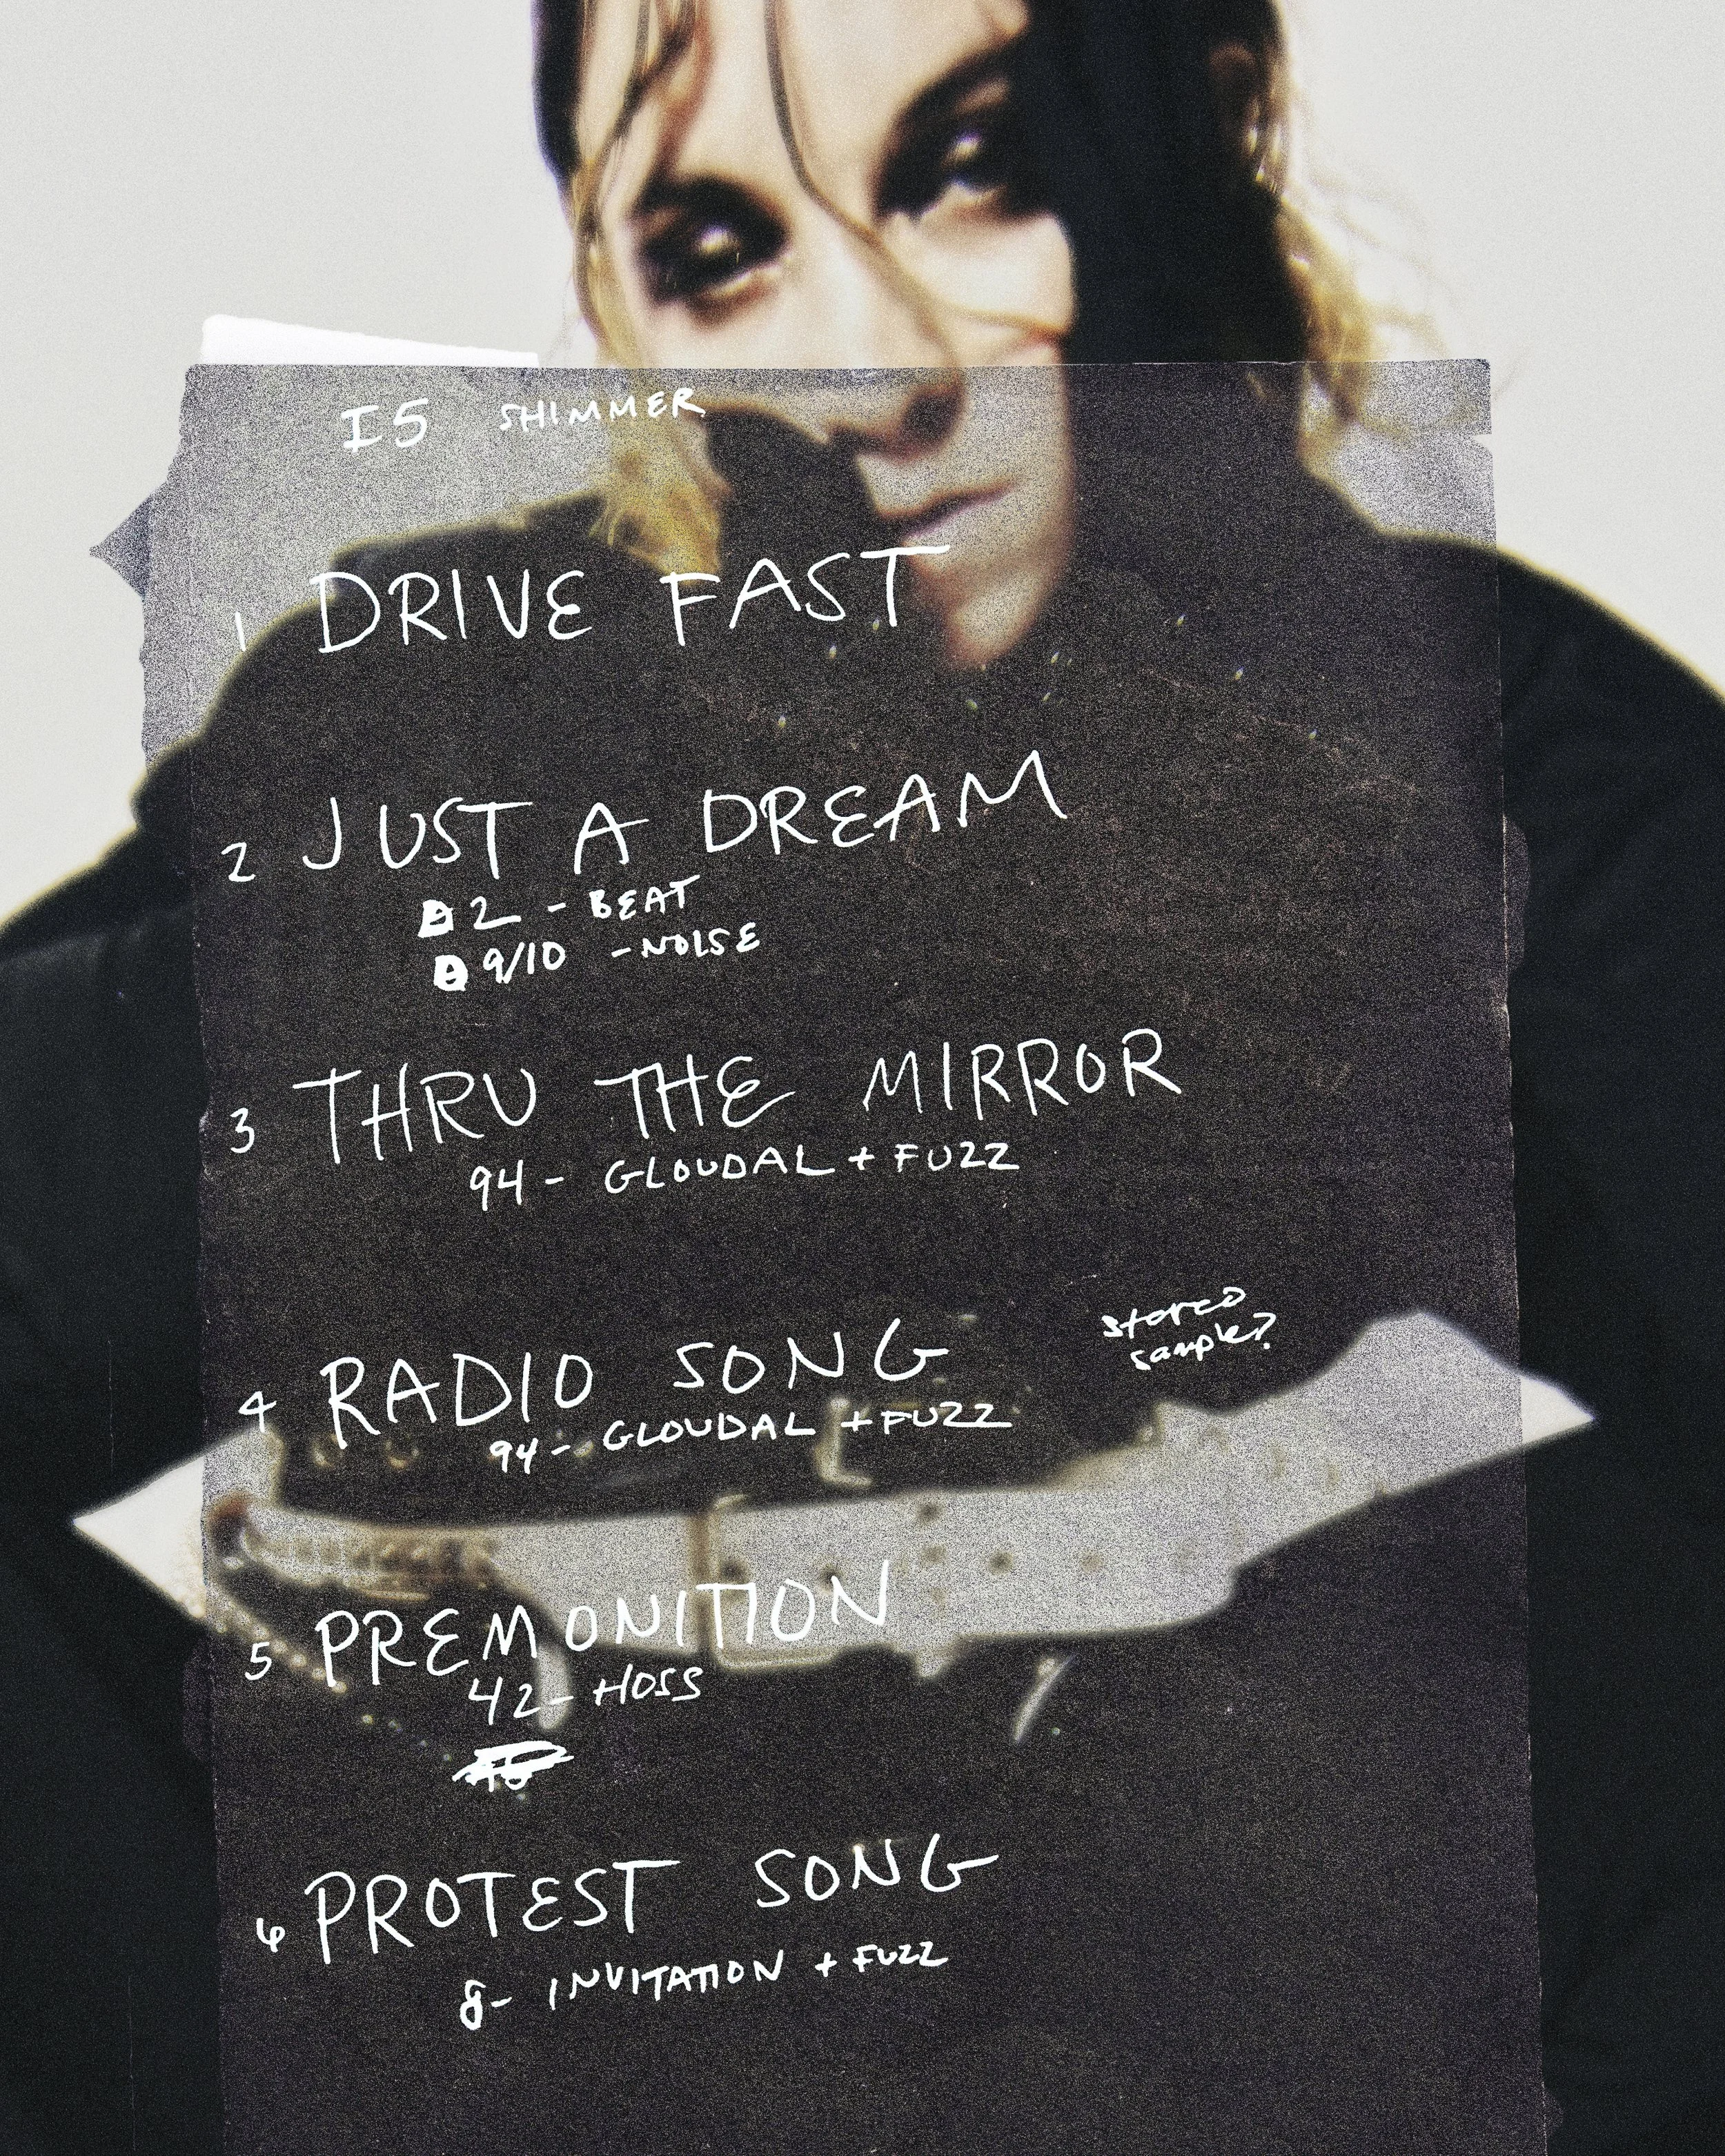 I5 SHIMMER
1 DRIVE FAST
2 JUST A DREAM
2 - BEAT
9/10 - NOISE
3 THRU THE MIRROR
94 - GLOUDAL + FUZZ
4 RADIO SONG
stereo
sample?
94 - GLOUDAL + FUZZ
5 PREMONITION
42 - HOSS
6 PROTEST SONG
8 - INVITATION + FUZZ